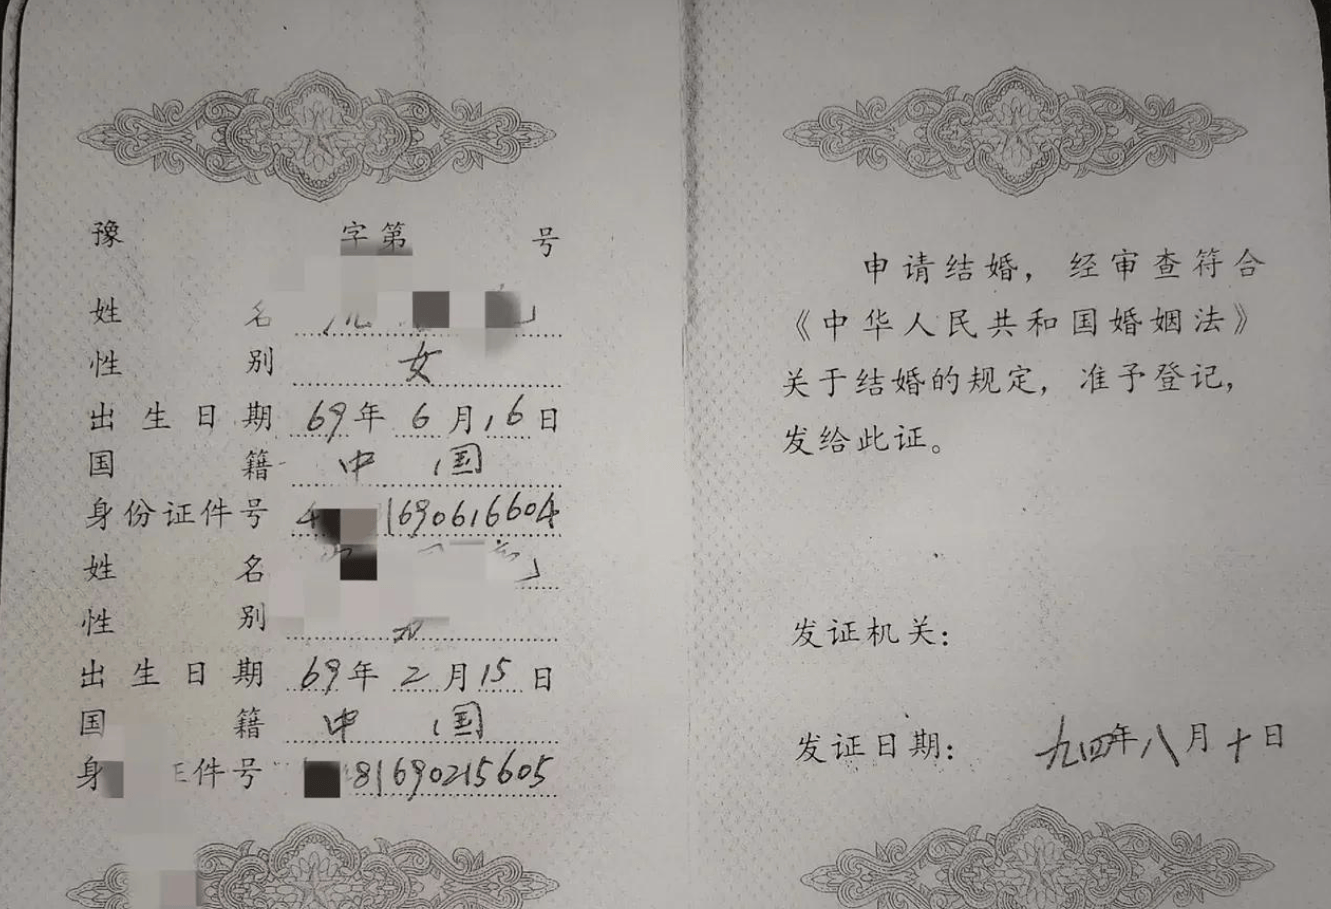 豫 字第 号
姓 名
性 别 女
出生日期 69年 6月16日
国 籍 中 国
身份证件号 4 1690616604
姓 名
性 别
出生日期 69年 2月15日
国 籍 中 国
身 件号 81690215605
申请结婚，经审查符合
《中华人民共和国婚姻法》
关于结婚的规定，准予登记，
发给此证。
发证机关：
发证日期： 九四年八月十日